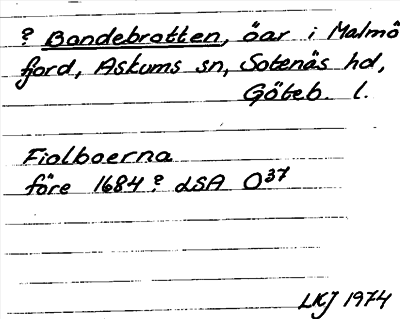 ? Bondebratten, öar i Malmö
fjord, Askums sn, Sotenäs hd,
Göteb. l.
Fiolboerna
före 1684? LSA O37
LKJ 1974